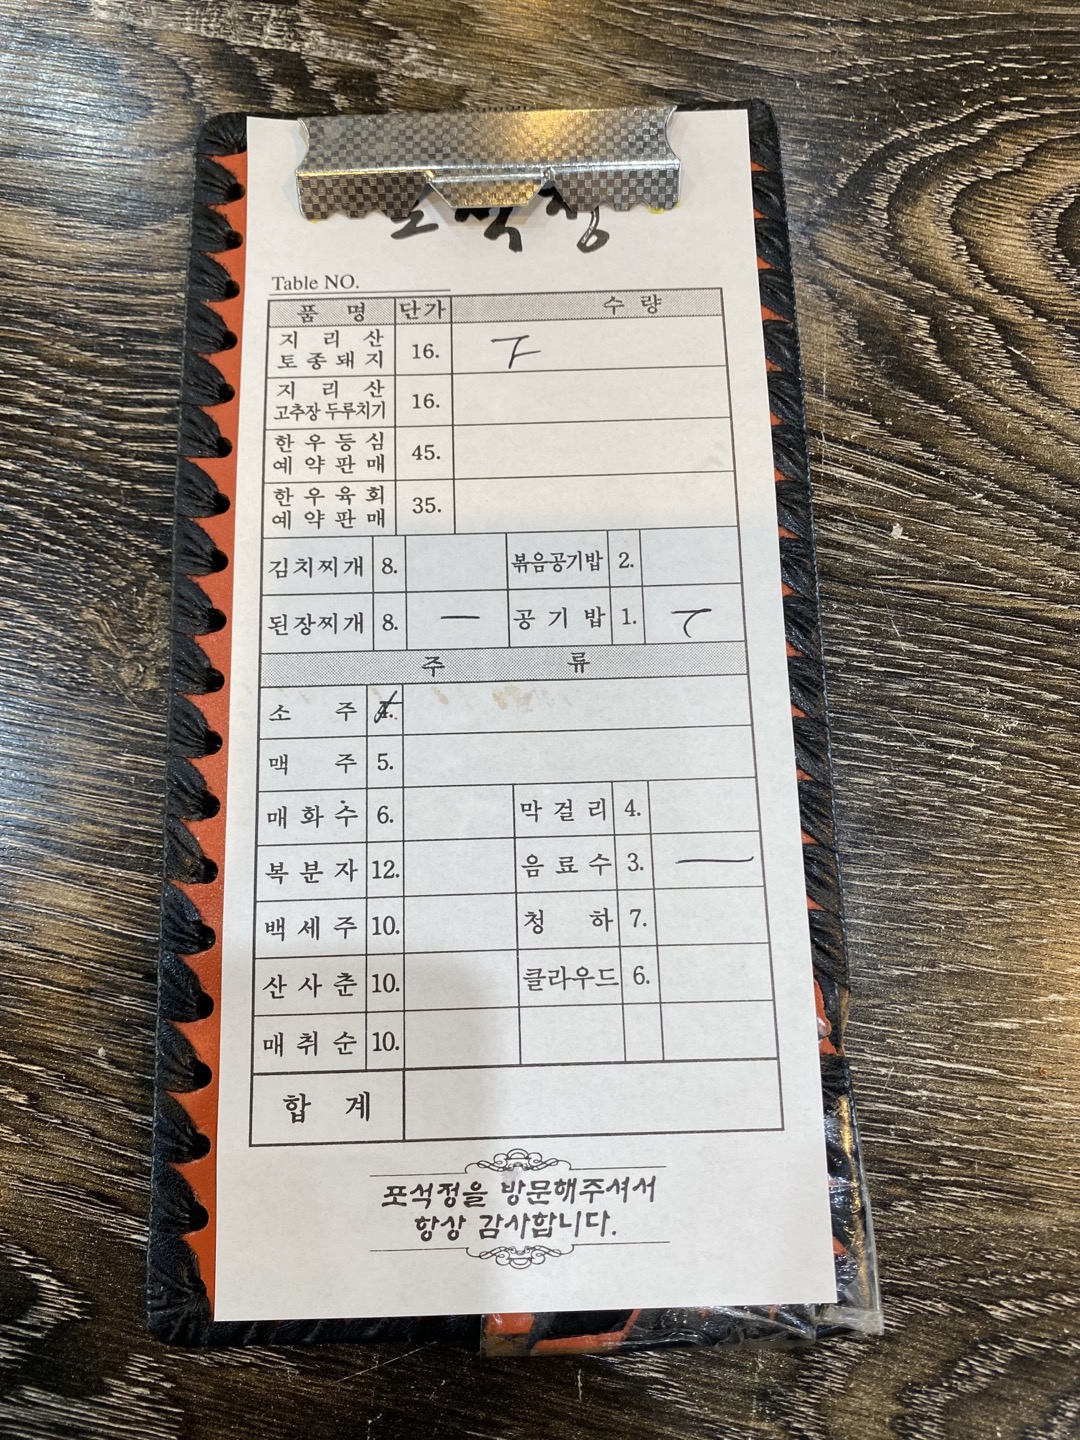 포석정
Table NO.
품 명 단가 수 량
지 리 산
토종돼지 16. 下
지 리 산
고추장 두루치기 16.
한우등심
예약판매 45.
한우육회
예약판매 35.
김치찌개 8. 볶음공기밥 2.
된장찌개 8. 一 공기밥 1. T
주 류
소 주
맥 주 5.
매화수 6. 막걸리 4.
복분자 12. 음료수 3. 一
백세주 10. 청 하 7.
산사춘 10. 클라우드 6.
매취순 10.
합 계
포석정을 방문해주셔서
항상 감사합니다.